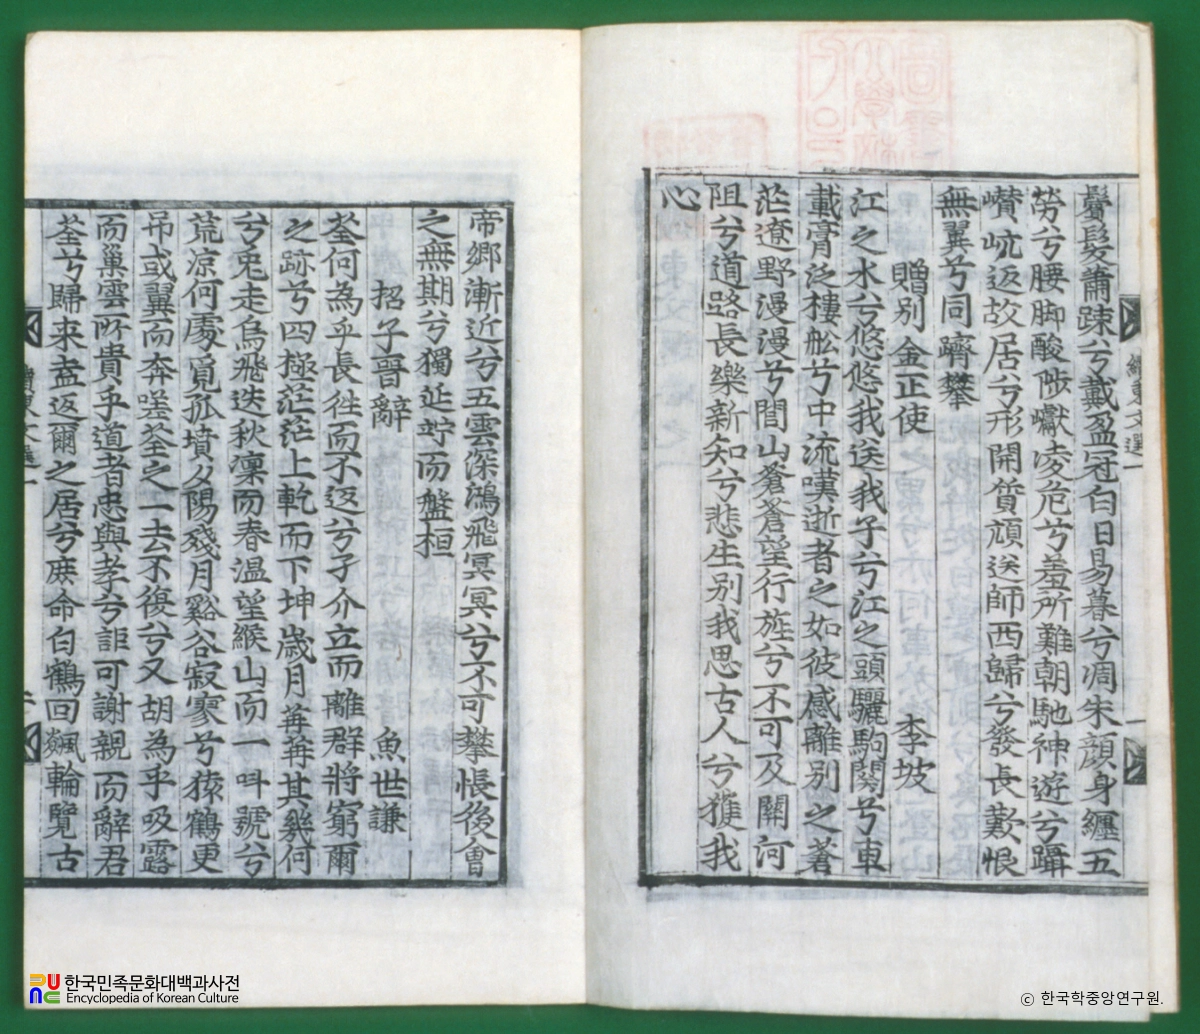 鬢髮蕭踈兮戴盈冠白日易暮兮凋朱顔身纒五
勞兮腰脚酸陟巘凌危兮羞所難朝馳神遊兮躡
巑岏返故居兮形開質頑送師西歸兮發長歎恨
無翼兮同躋攀
贈別金正使 李坡
江之水兮悠悠我送我子兮江之頭驪駒闋兮車
載膏泛樓舩兮中流嘆逝者之如彼感離別之著
茫遼野漫漫兮閭山蒼蒼望行旌兮不可及關河
阻兮道路長樂新知兮悲生别我思古人兮獲我
心
續東文選一
帝郷漸近兮五雲深鴻飛冥冥兮不可攀悵後會
之無期兮獨延竚而盤桓
招子晉辭 魚世謙
荃何為乎長徃而不返兮孑介立而離群將窮爾
之跡兮四極茫茫上乾而下坤歲月苒苒其幾何
兮兎走烏飛迭秋凜而春温望緱山而一呌號兮
荒凉何處覓孤墳夕陽殘月谿谷寂寥兮猿鶴更
吊或翼而奔嗟荃之一去不復兮又胡為乎吸露
而巢雲所貴乎道者忠與孝兮詎可謝親而辭君
荃兮歸来盍返爾之居兮庶命白鶴回飊輪覽古
續東文選一
二
한국민족문화대백과사전
Encyclopedia of Korean Culture
© 한국학중앙연구원.